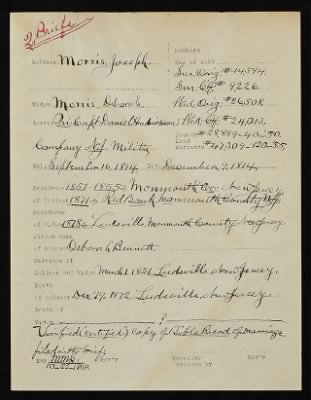 2 Briefs
Numbers
Soldier Morris, Joseph War of 1812
Sur. Orig. #14,594.
Sur. Ctf. # 9,226.
Widow Morris, Deborah Wid. Orig. #26,508.
Service Pvt. Capt. Daniel Wid. Ctf. # 24,013.
Bounty #28,889-40-50.
Company N.J. Militia Land Warrants #47,309-
Enl. September 16, 1814. Dis. December 7, 1814.
Residence 1851 1855 Monmouth Co., New Jersey
of Soldier 1871 Red Bank Monmouth County
Residence
of Widow 1878 Leedsville Monmouth County New Jersey
Maiden name
of Widow Deborah Bennett
Marriage of
Soldier and Widow March 1, 1821, Leedsville, New Jersey.
Death
of Soldier Dec. 1872 Leedsville, New Jersey
Death
of Widow ?
Verified (certified) Copy of Bible Record of marriage
filed with Briefs